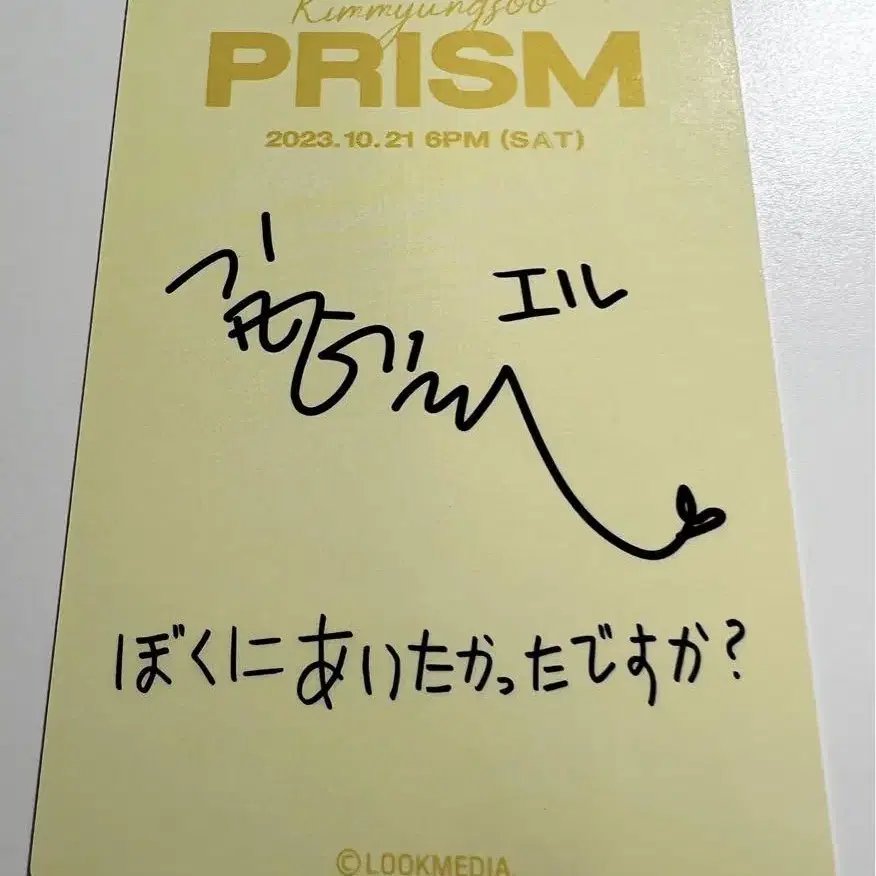 Kimmyungsoo
PRISM
2023.10.21 6PM (SAT)
エル
ぼくにあいたかったですか?
©LOOKMEDIA